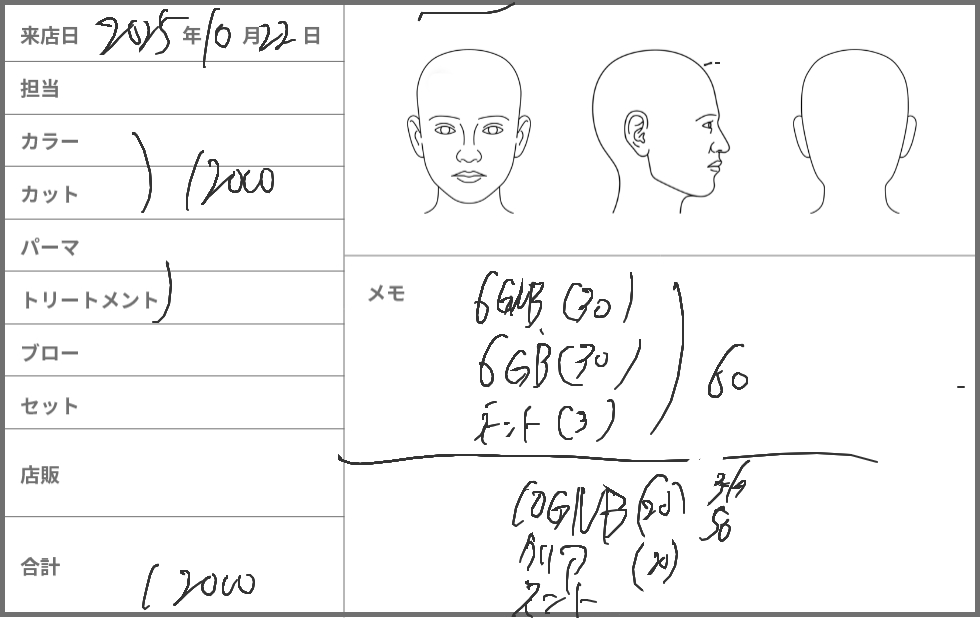 来店日 2025年10月22日
担当
カラー
カット
12000
パーマ
トリートメント
ブロー
セット
店販
合計
12000
メモ
6GNB (30)
6GB (30)
ミント (3)
60
10GNB (20)
クリア (20)
ミント